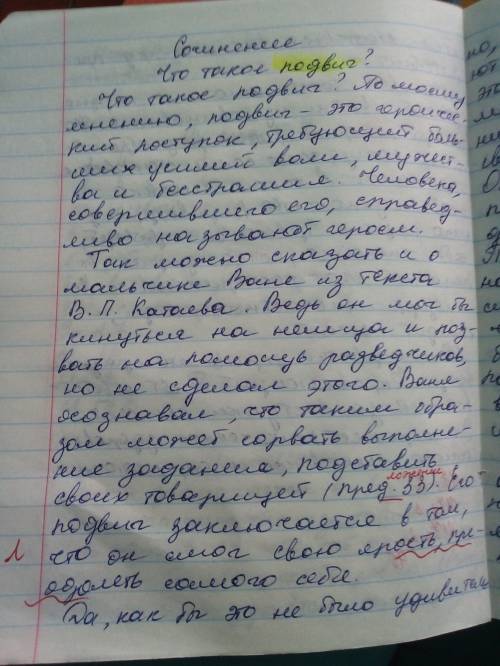 Сочинение
Что такое подвиг?
Что такое подвиг? По моему
мнению, подвиг - это героичес-
кий поступок, требующий боль-
ших усилий воли, мужест-
ва и бесстрашия. Человека,
совершившего его, справед-
ливо называют героем.
Так можно сказать и о
мальчике Ване из текста
В. П. Катаева. Ведь он мог бы
кинуться на немца и поз-
вать на помощь разведчиков,
но не сделал этого. Ваня
осознавал, что таким обра-
зом может сорвать выполне-
ние задания, подставить
своих товарищей (пред. 33). Его
ложение
подвиг заключается в том,
Л что он смог свою ярость, пре-
одолеть самого себя.
Да, как бы это не было удивительн